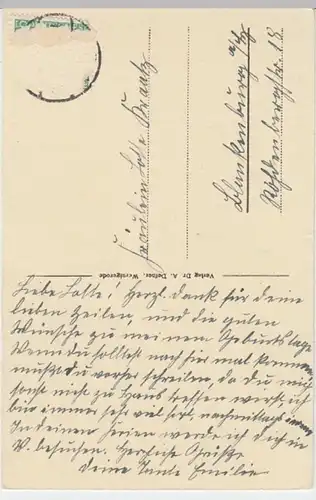 Fräulein Lotte Kraatz
Blankenburg a/H
Rübenbergstr. 18
Verlag Dr. A. Defner, Wernigerode
Liebe Lotte! Herzl. Dank für deine
lieben Zeilen, und die guten
Wünsche zu meinem Geburtstage
Wenn du solltest noch hier mal kommen
mußt du vorher schreiben, da du mich
sonst nicht zu Haus treffen wirst, ich
bin immer sehr viel fort, nachmittags immer
In deinen Ferien werde ich dich in
W. besuchen. Herzliche Grüße
deine Tante Emilie